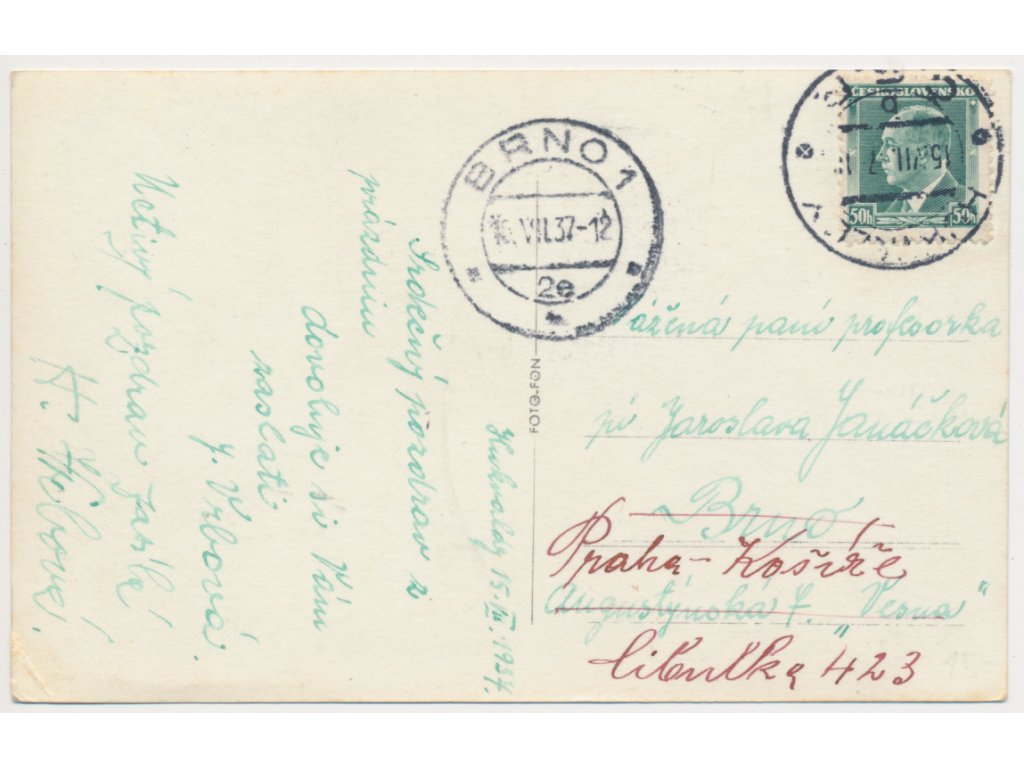 Hukvaldy 15. VII. 1937.
Srdečný pozdrav z
prázdnin
dovoluje si Vám
zaslati
J. Vrbová.
Uctivý pozdrav
BRNO 1
16. VII. 37-12
2e
FOTO-FON
ČESKOSLOVENSKO
50h 50h
15. VII.
Vážená paní profesorka
pí Jaroslava Janáčková
Brno
Praha - Košíře
Augustýnská 7. "Vesna"
Cibulka 423
15-